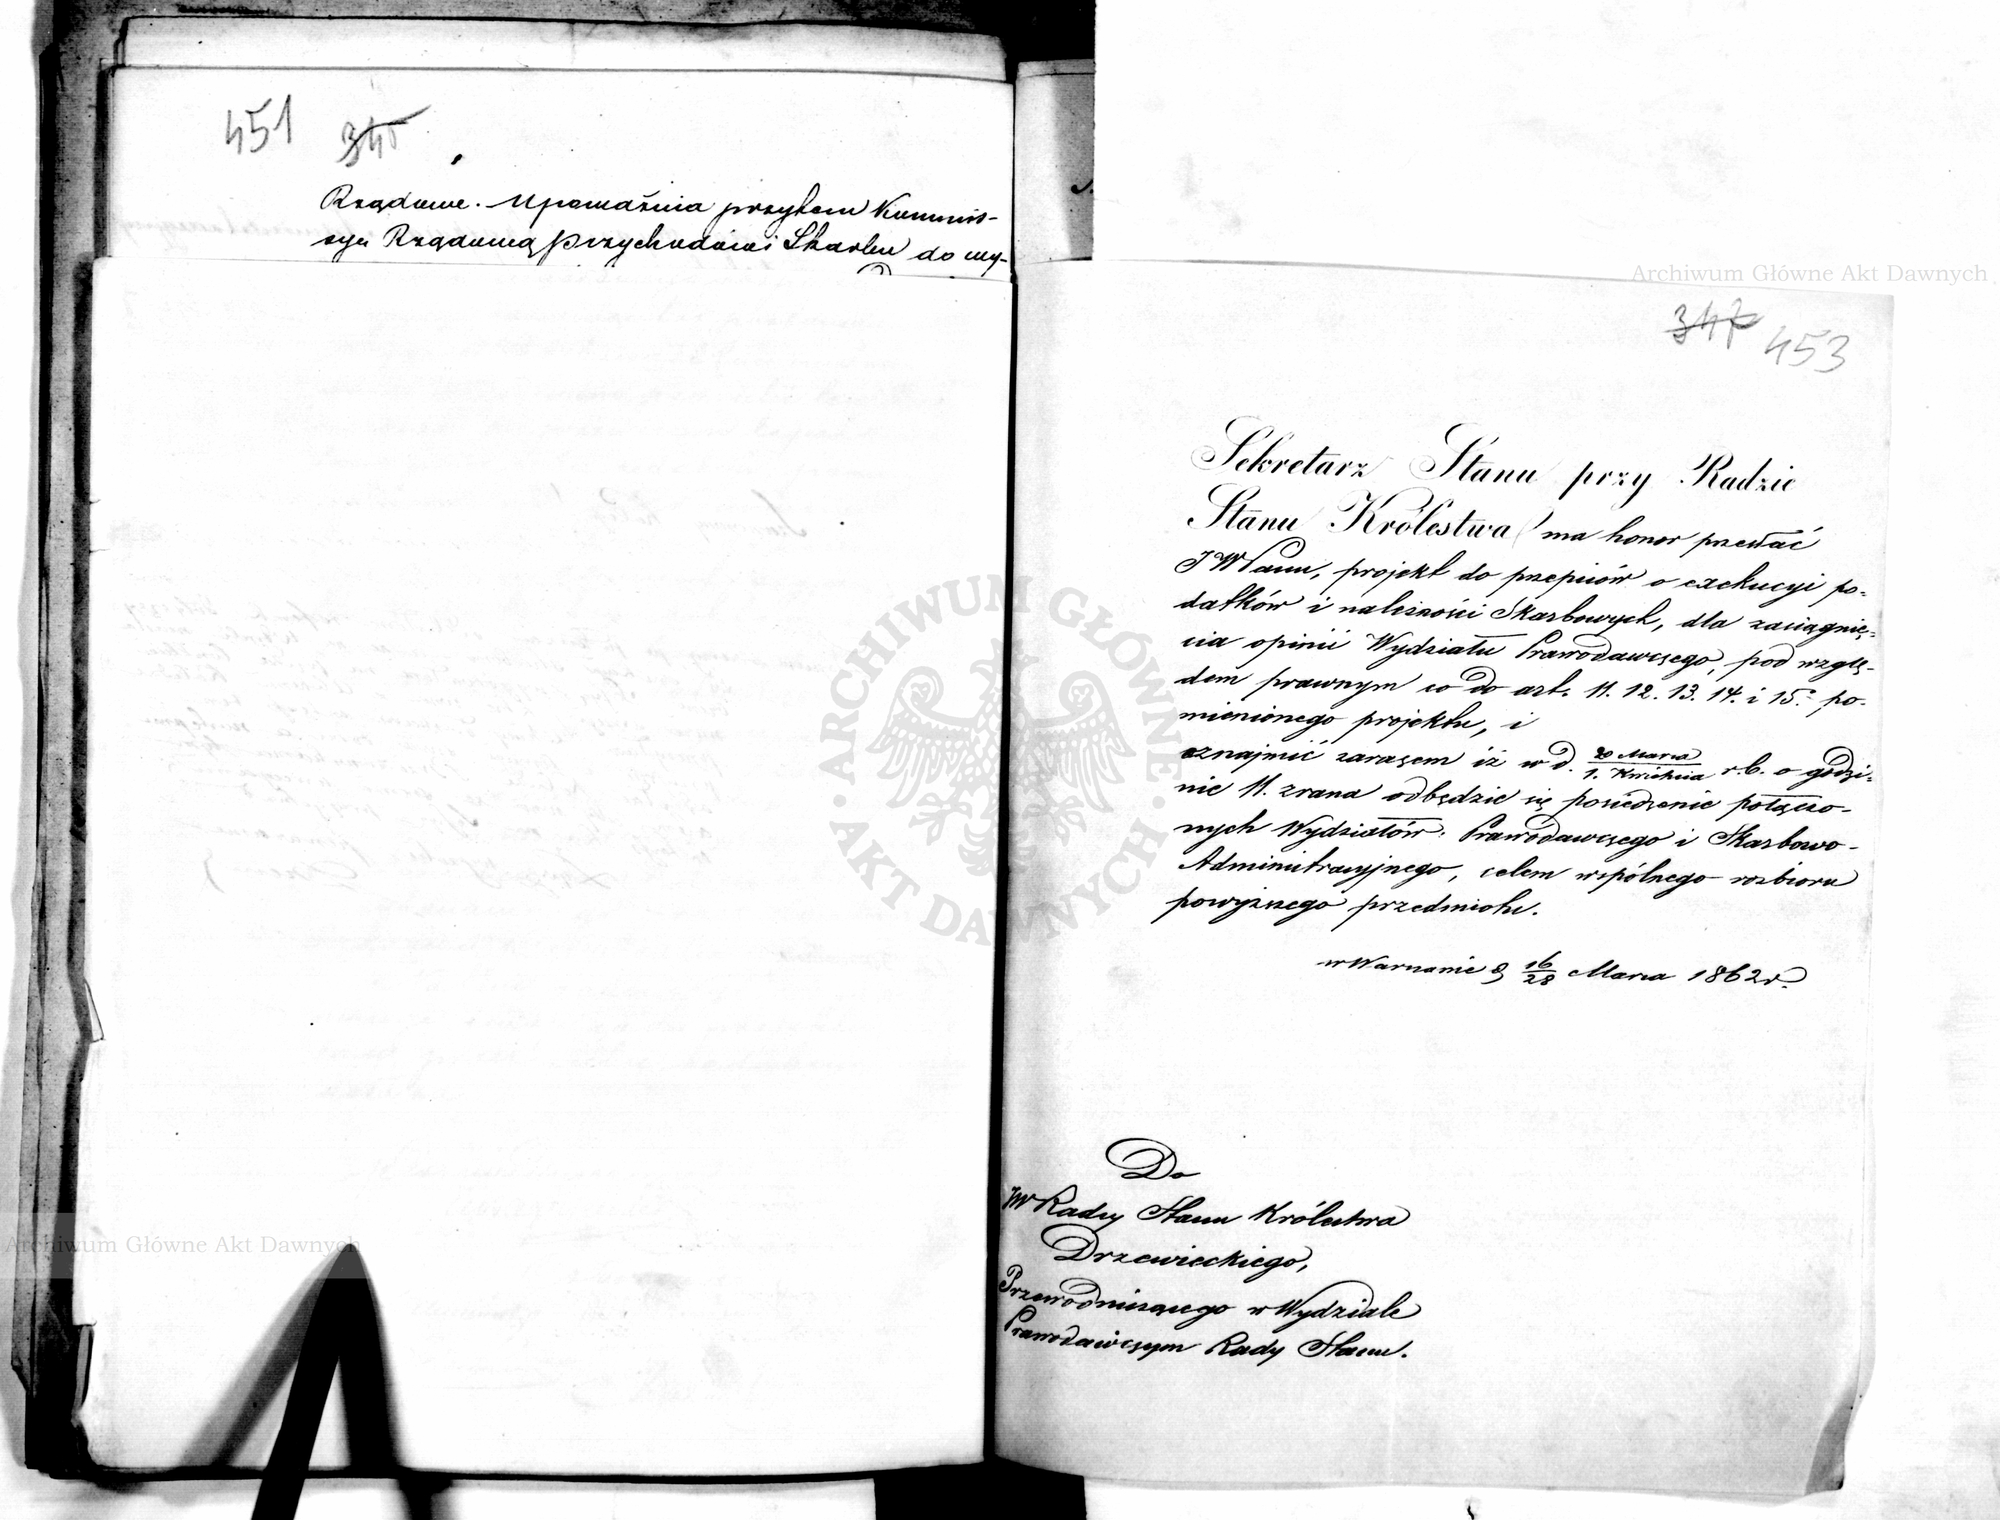 451 345
Rządowe. Upoważnia przytem Kommis-
syą Rządową Przychodów i Skarbu do wy-
Archiwum Główne Akt Dawnych
347 453
Sekretarz Stanu przy Radzie
Stanu Królestwa ma honor przesłać
JWPanu, projekt do przepisów o exekucyi po-
datków i należności Skarbowych, dla zaciągnię-
cia opinii Wydziału Prawodawczego, pod wzglę-
dem prawnym co do art. 11. 12. 13. 14. i 15. po-
mienionego projektu, i
oznajmić zarazem iż w d. 20 Marca / 1. Kwietnia r.b. o godzi-
nie 11. zrana odbędzie się posiedzenie połączo-
nych Wydziałów: Prawodawczego i Skarbowo-
Administracyjnego, celem wspólnego rozbioru
powyższego przedmiotu.
w Warszawie d 16/28 Marca 1862 r.
Do
JW Radcy Stanu Królestwa
Drzewieckiego,
Przewodniczącego w Wydziale
Prawodawczym Rady Stanu.
ARCHIWUM GŁÓWNE AKT DAWNYCH
Archiwum Główne Akt Dawnych